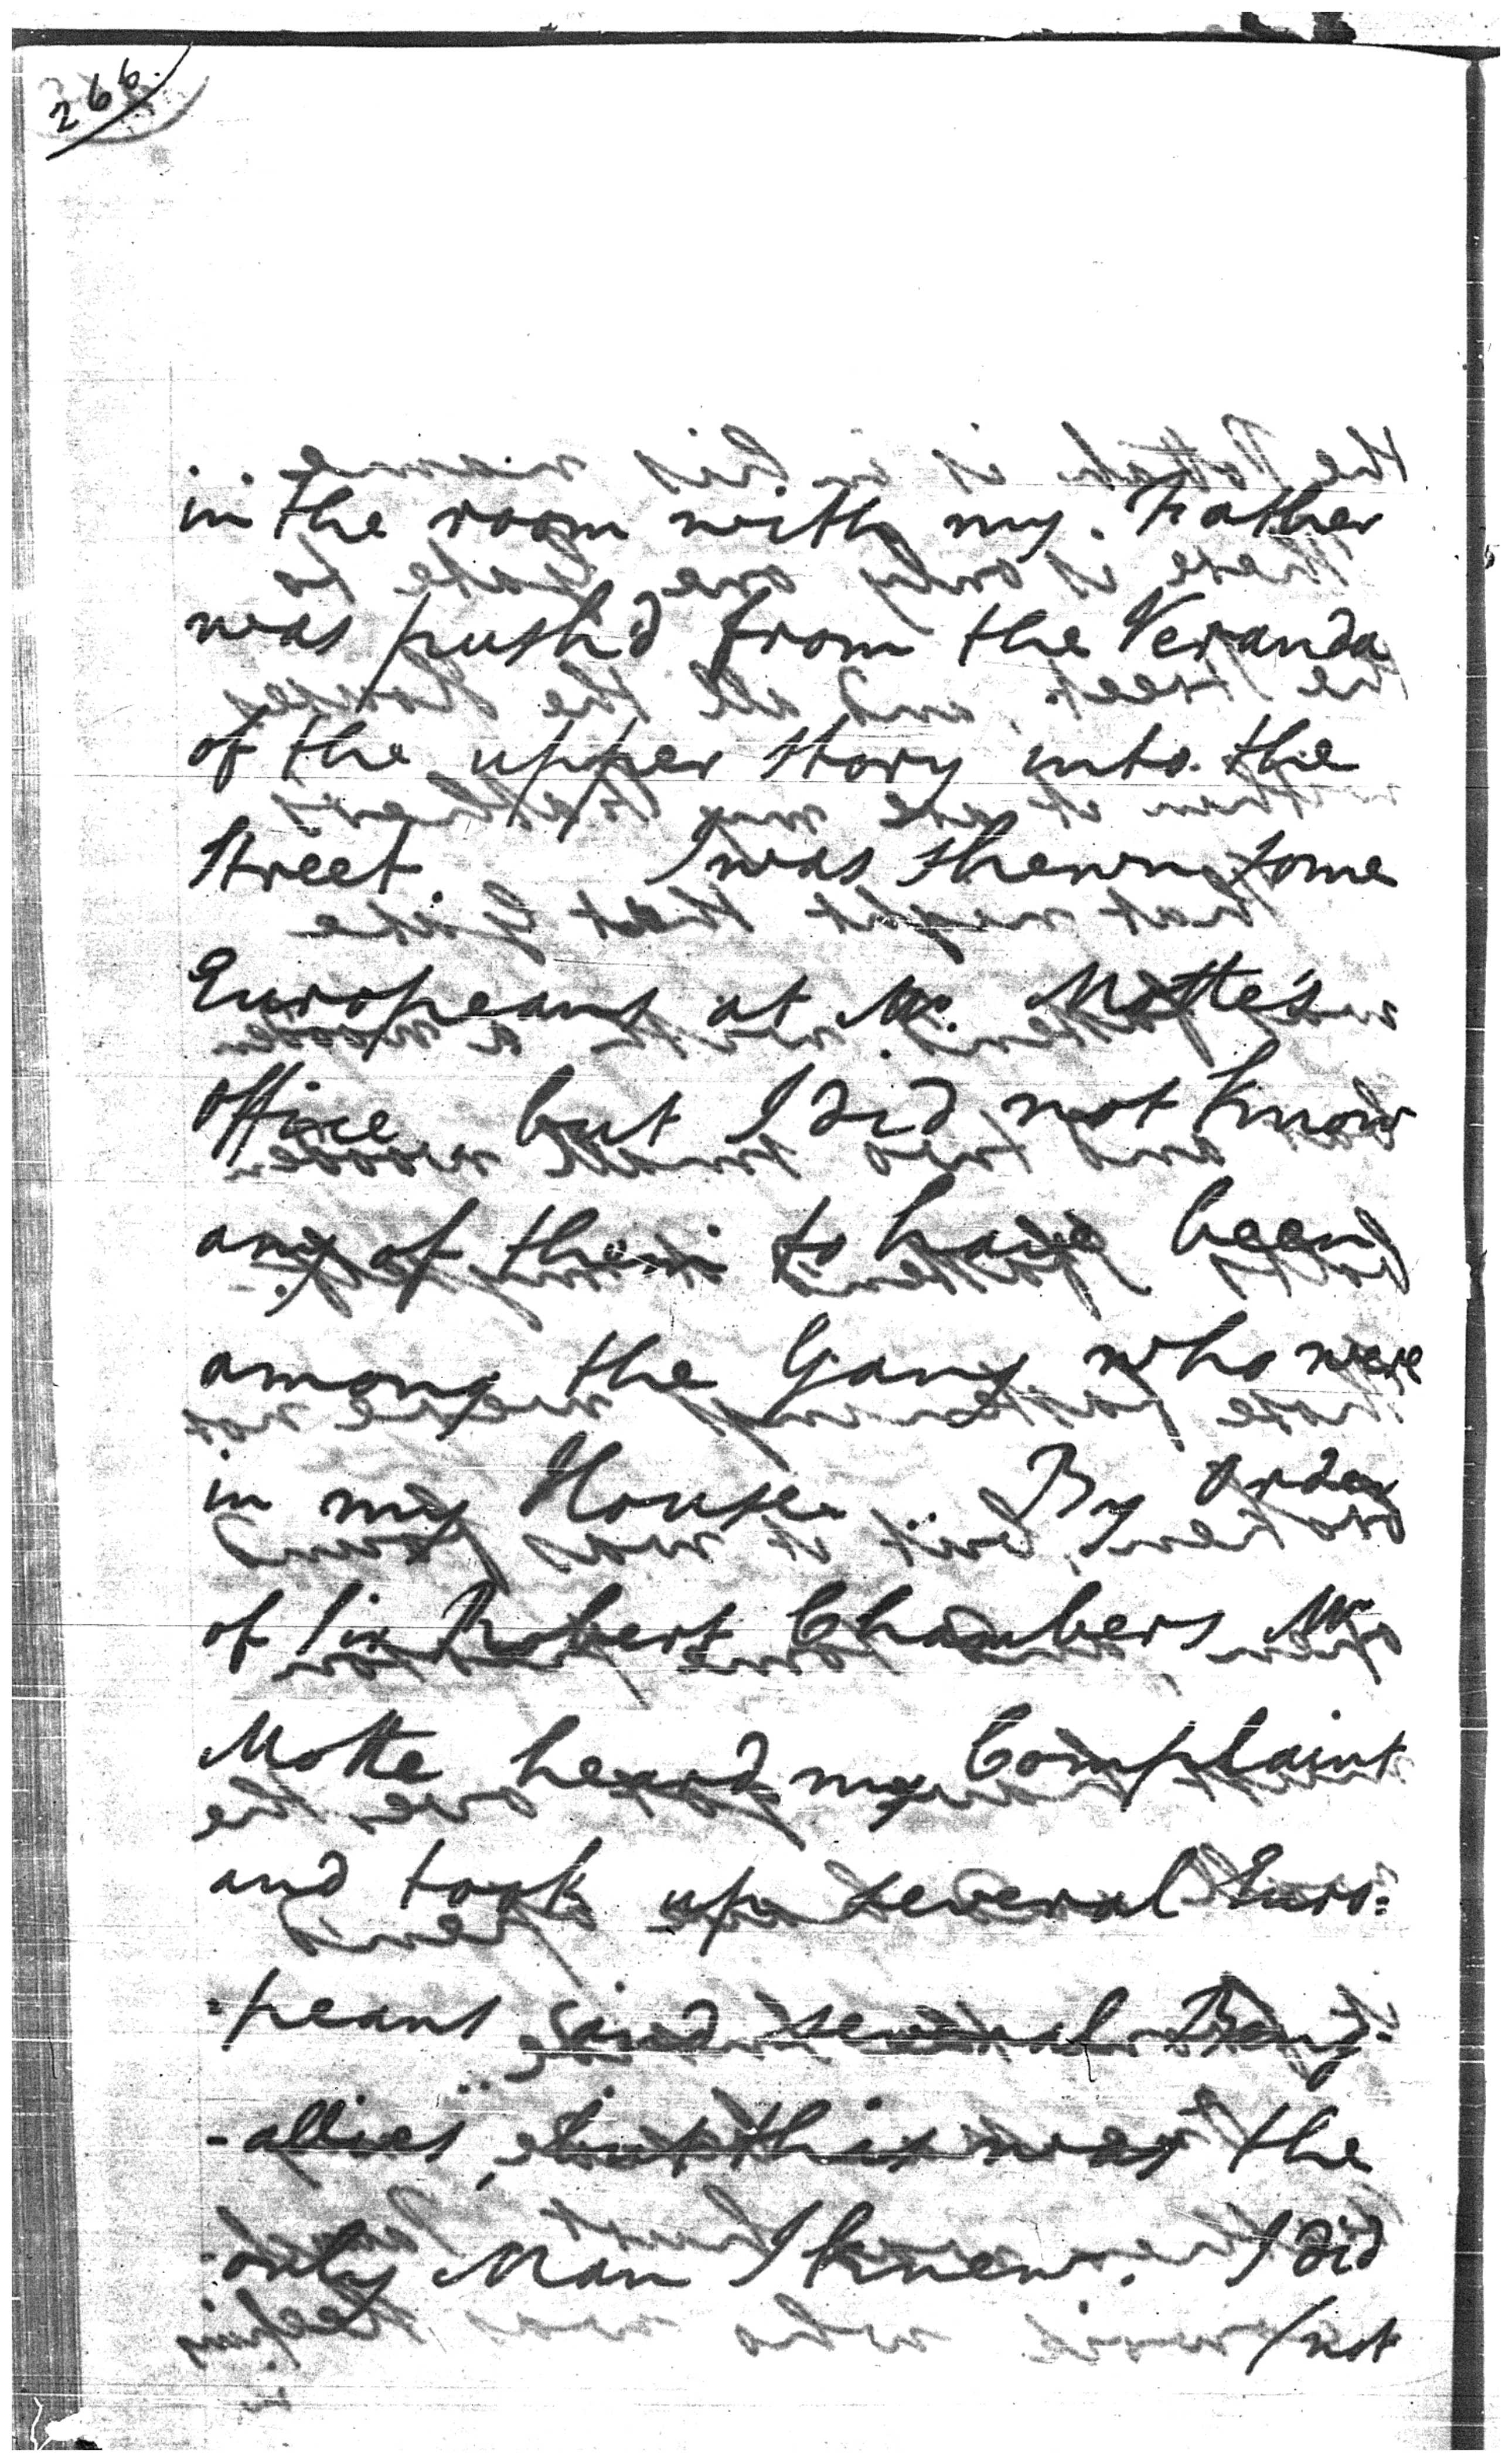 266.
in the room with my Father
was push'd from the Veranda
of the upper Story into the
Street. I was shewn some
Europeans at Mr. Motte's
office, but I did not know
any of them to have been
among the Gang who were
in my House. By order
of Sir Robert Chambers Mr.
Motte heard my Complaint
and took up several Euro=
-peans and several Beng-
-allies, but this was the
only Man I knew. I did
/not